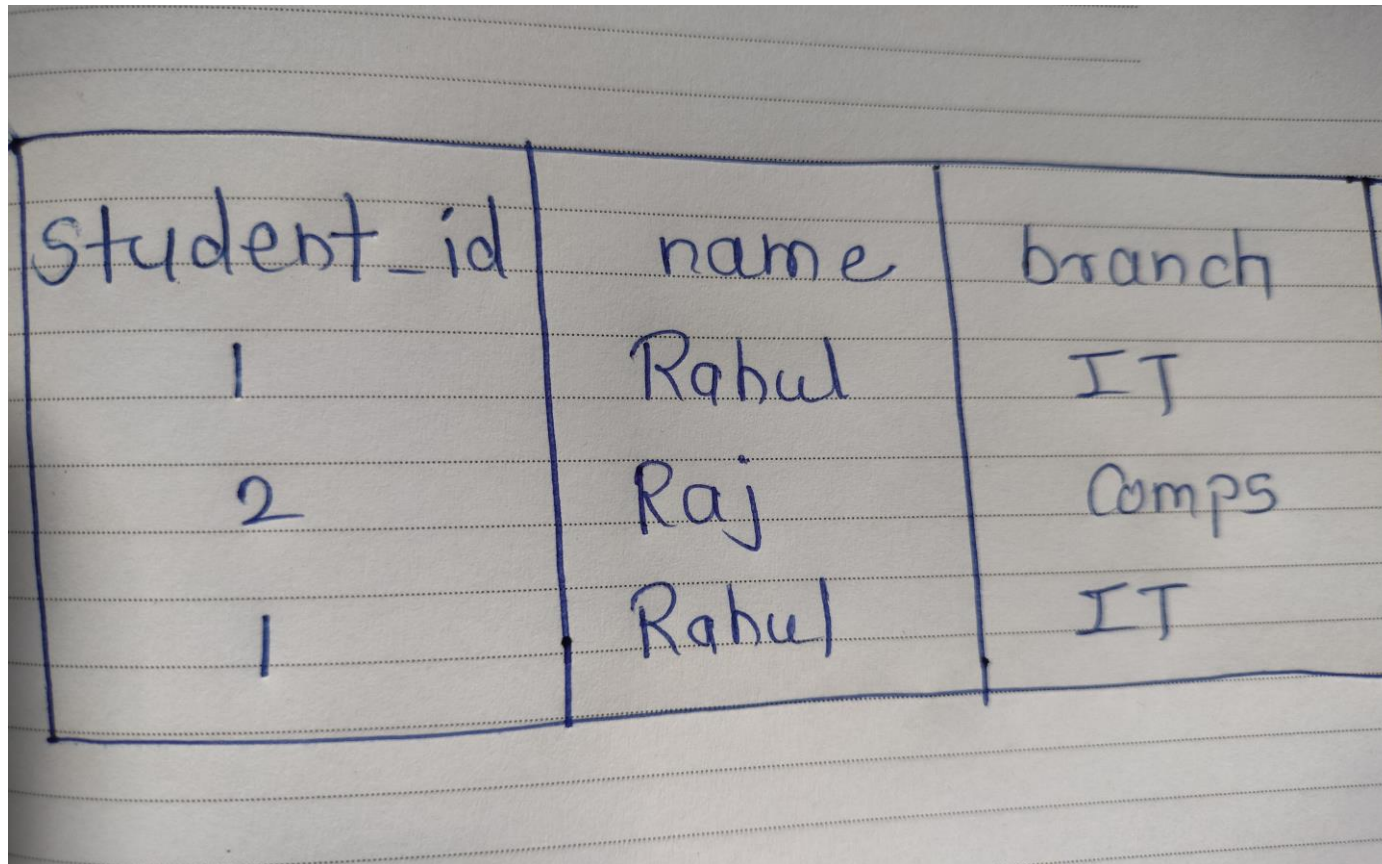 student_id name branch
1 Rahul IT
2 Raj Comps
1 Rahul IT